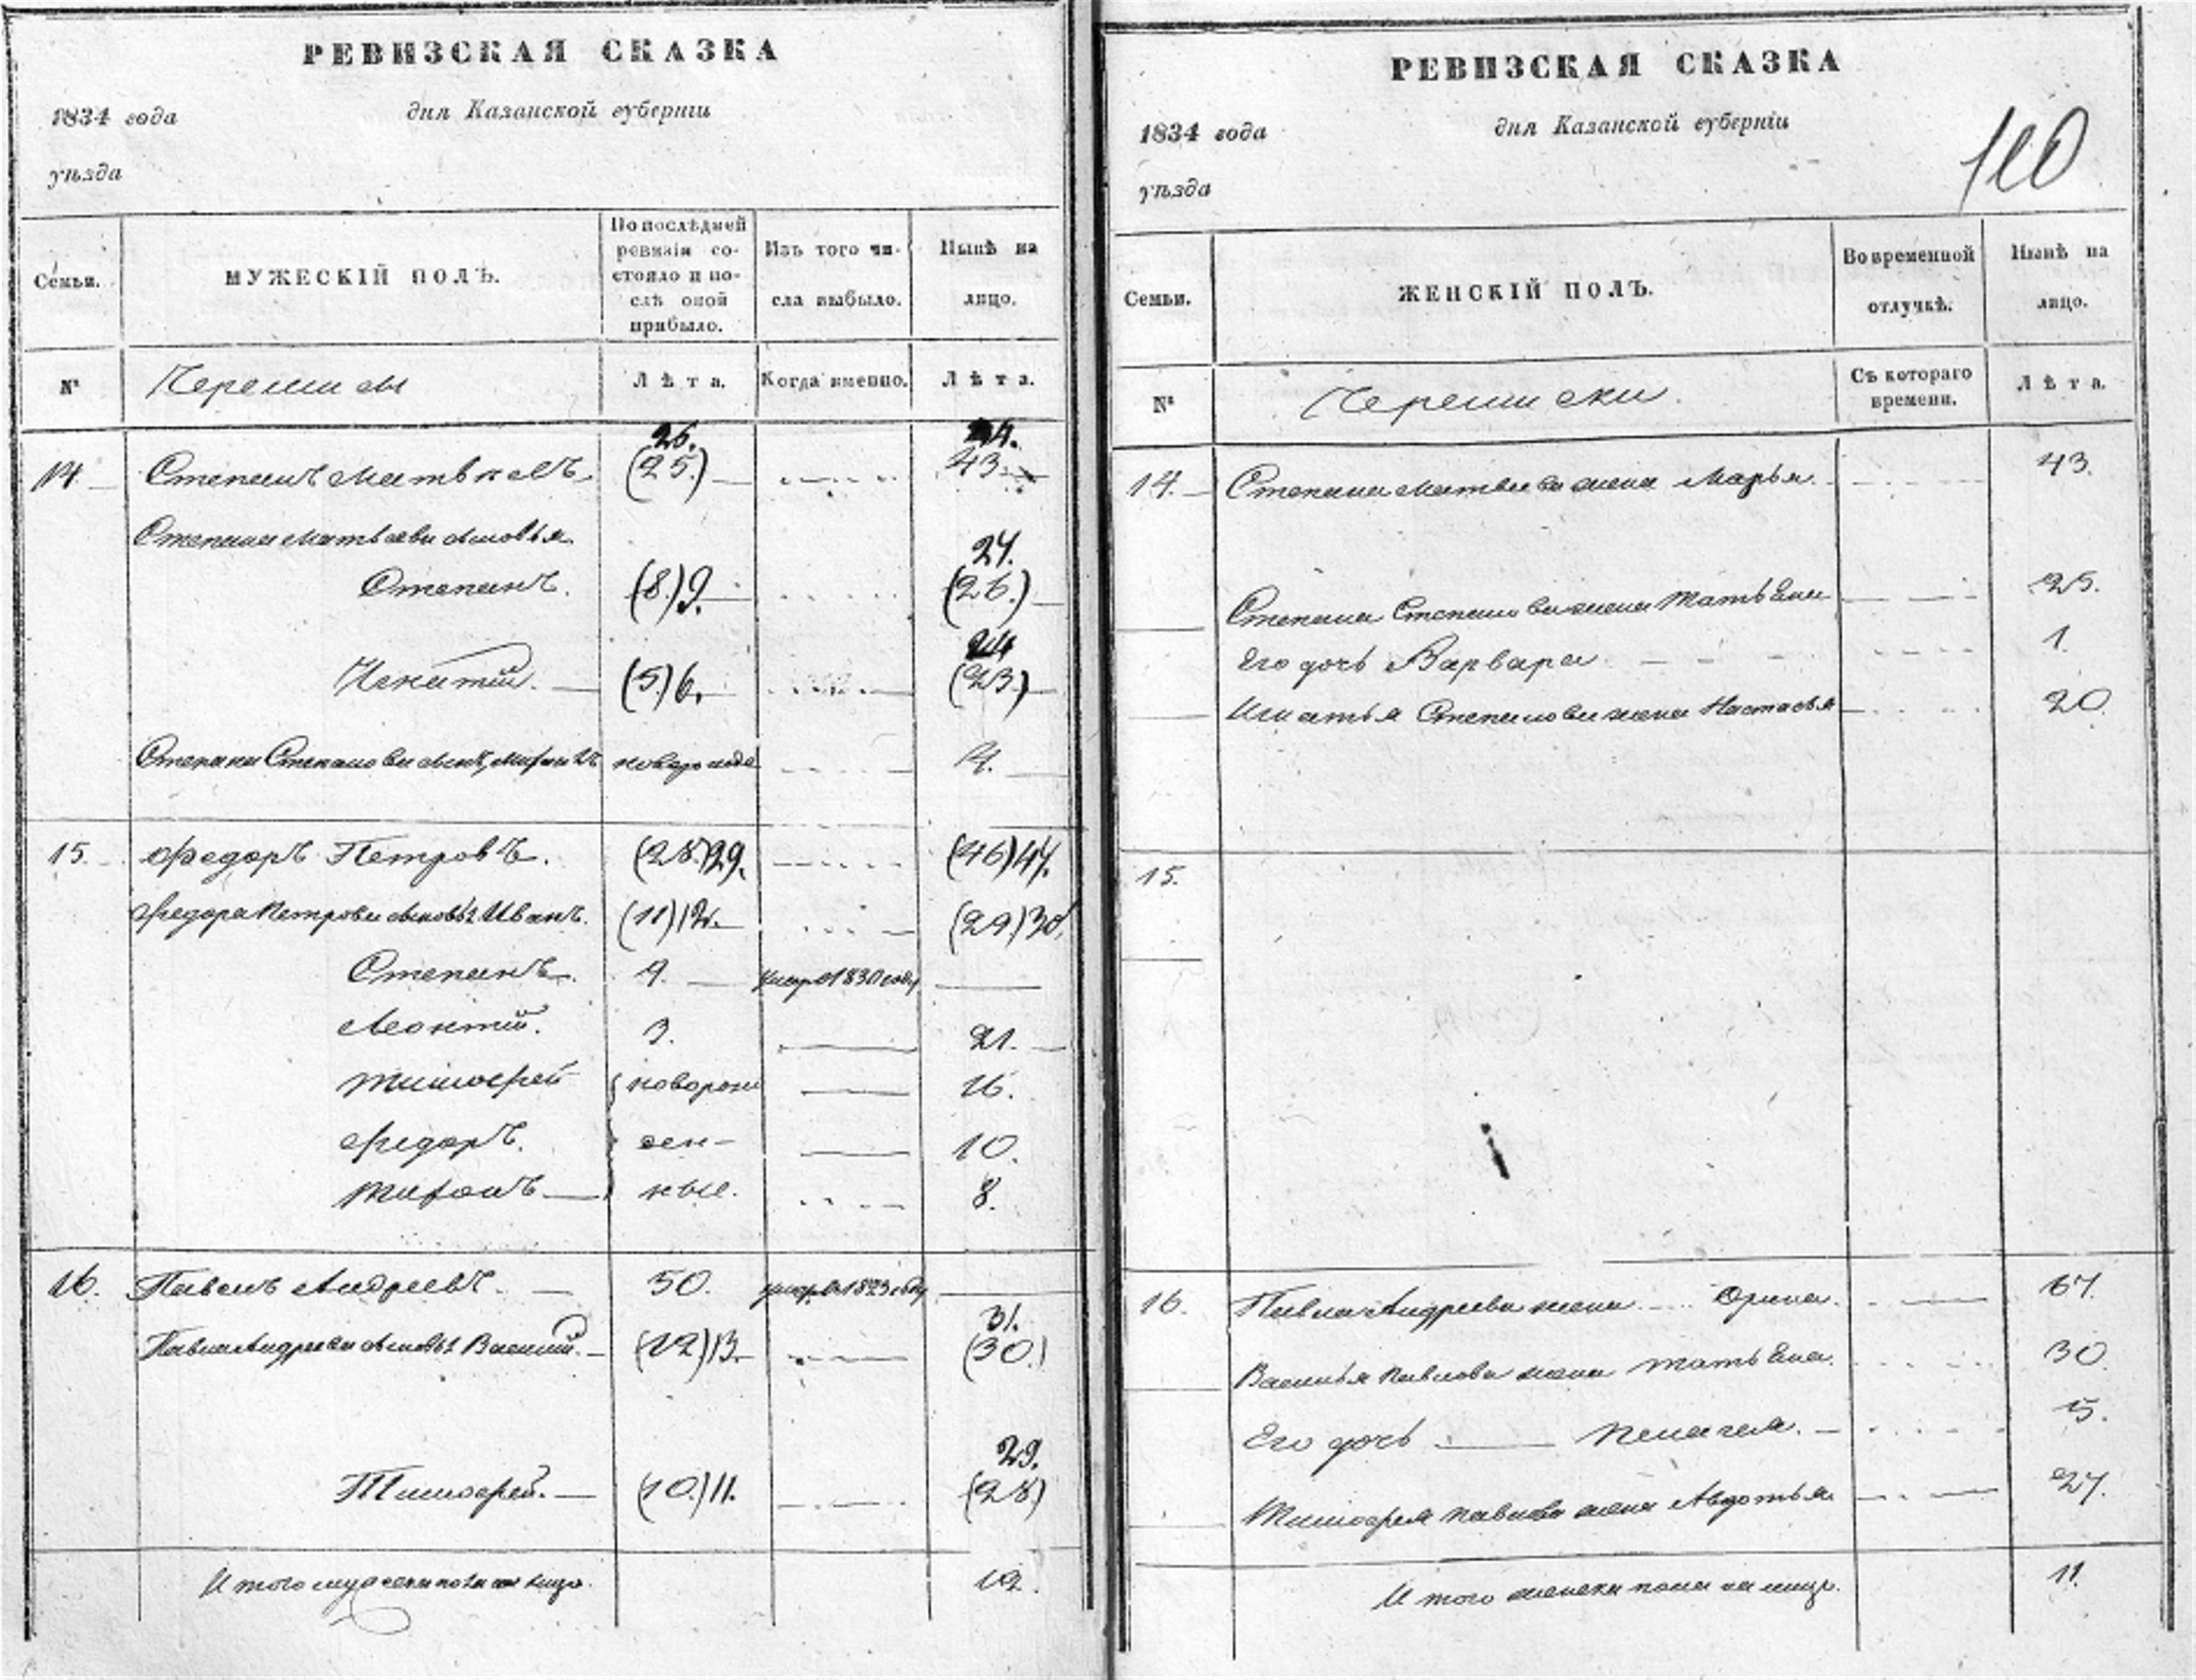 РЕВИЗСКАЯ СКАЗКА
1834 года
дня Казанской губерніи
уѣзда
Семьи.
МУЖЕСКІЙ ПОЛЪ.
По послѣдней
ревизіи со-
стояло и по-
слѣ оной
прибыло.
Изъ того чи-
сла выбыло.
Нынѣ на
лицо.
№
Черемисы
Лѣта.
Когда именно.
Лѣта.
26. 44.
14. Степанъ Матвѣевъ (25.) 43
Степана Матвѣева сыновья
27.
Степанъ. (8.) 9. (26.)
24
Игнатій. (5) 6. (23.)
Степана Степанова сынъ новорож 4.
15. Федоръ Петровъ. (28.) 29. (46) 47.
Федора Петрова сыновья Иванъ. (11) 12. (29) 30.
Степанъ. 9. умеръ 1830 году
Леонтій. 3. 21.
Тимофей новорож 16.
Федоръ. ден- 10.
ные. 8.
16. Павелъ Андреевъ. 50. умеръ 1823 году
31.
Павла Андреева сыновья Василій. (12) 13. (30.)
29.
Тимофей. (10.) 11. (28)
Итого мужеска пола на лицо. 12.
РЕВИЗСКАЯ СКАЗКА
1834 года
дня Казанской губерніи
110
уѣзда
Семьи.
ЖЕНСКІЙ ПОЛЪ.
Во временной
отлучкѣ.
Нынѣ на
лицо.
№
Черемиски.
Съ котораго
времени.
Лѣта.
14. Степана Матвеева жена Марья. 43.
Степана Степанова жена Татьяна 25.
Его дочь Варвара 1.
Игнатья Степанова жена Настасья 20.
15.
16. Павла Андреева жена Орина. 67.
Василья Павлова жена Татьяна. 30.
Его дочь Пелагея. 5.
Тимофея Павлова жена Авдотья 27.
Итого женска пола на лицо. 11.